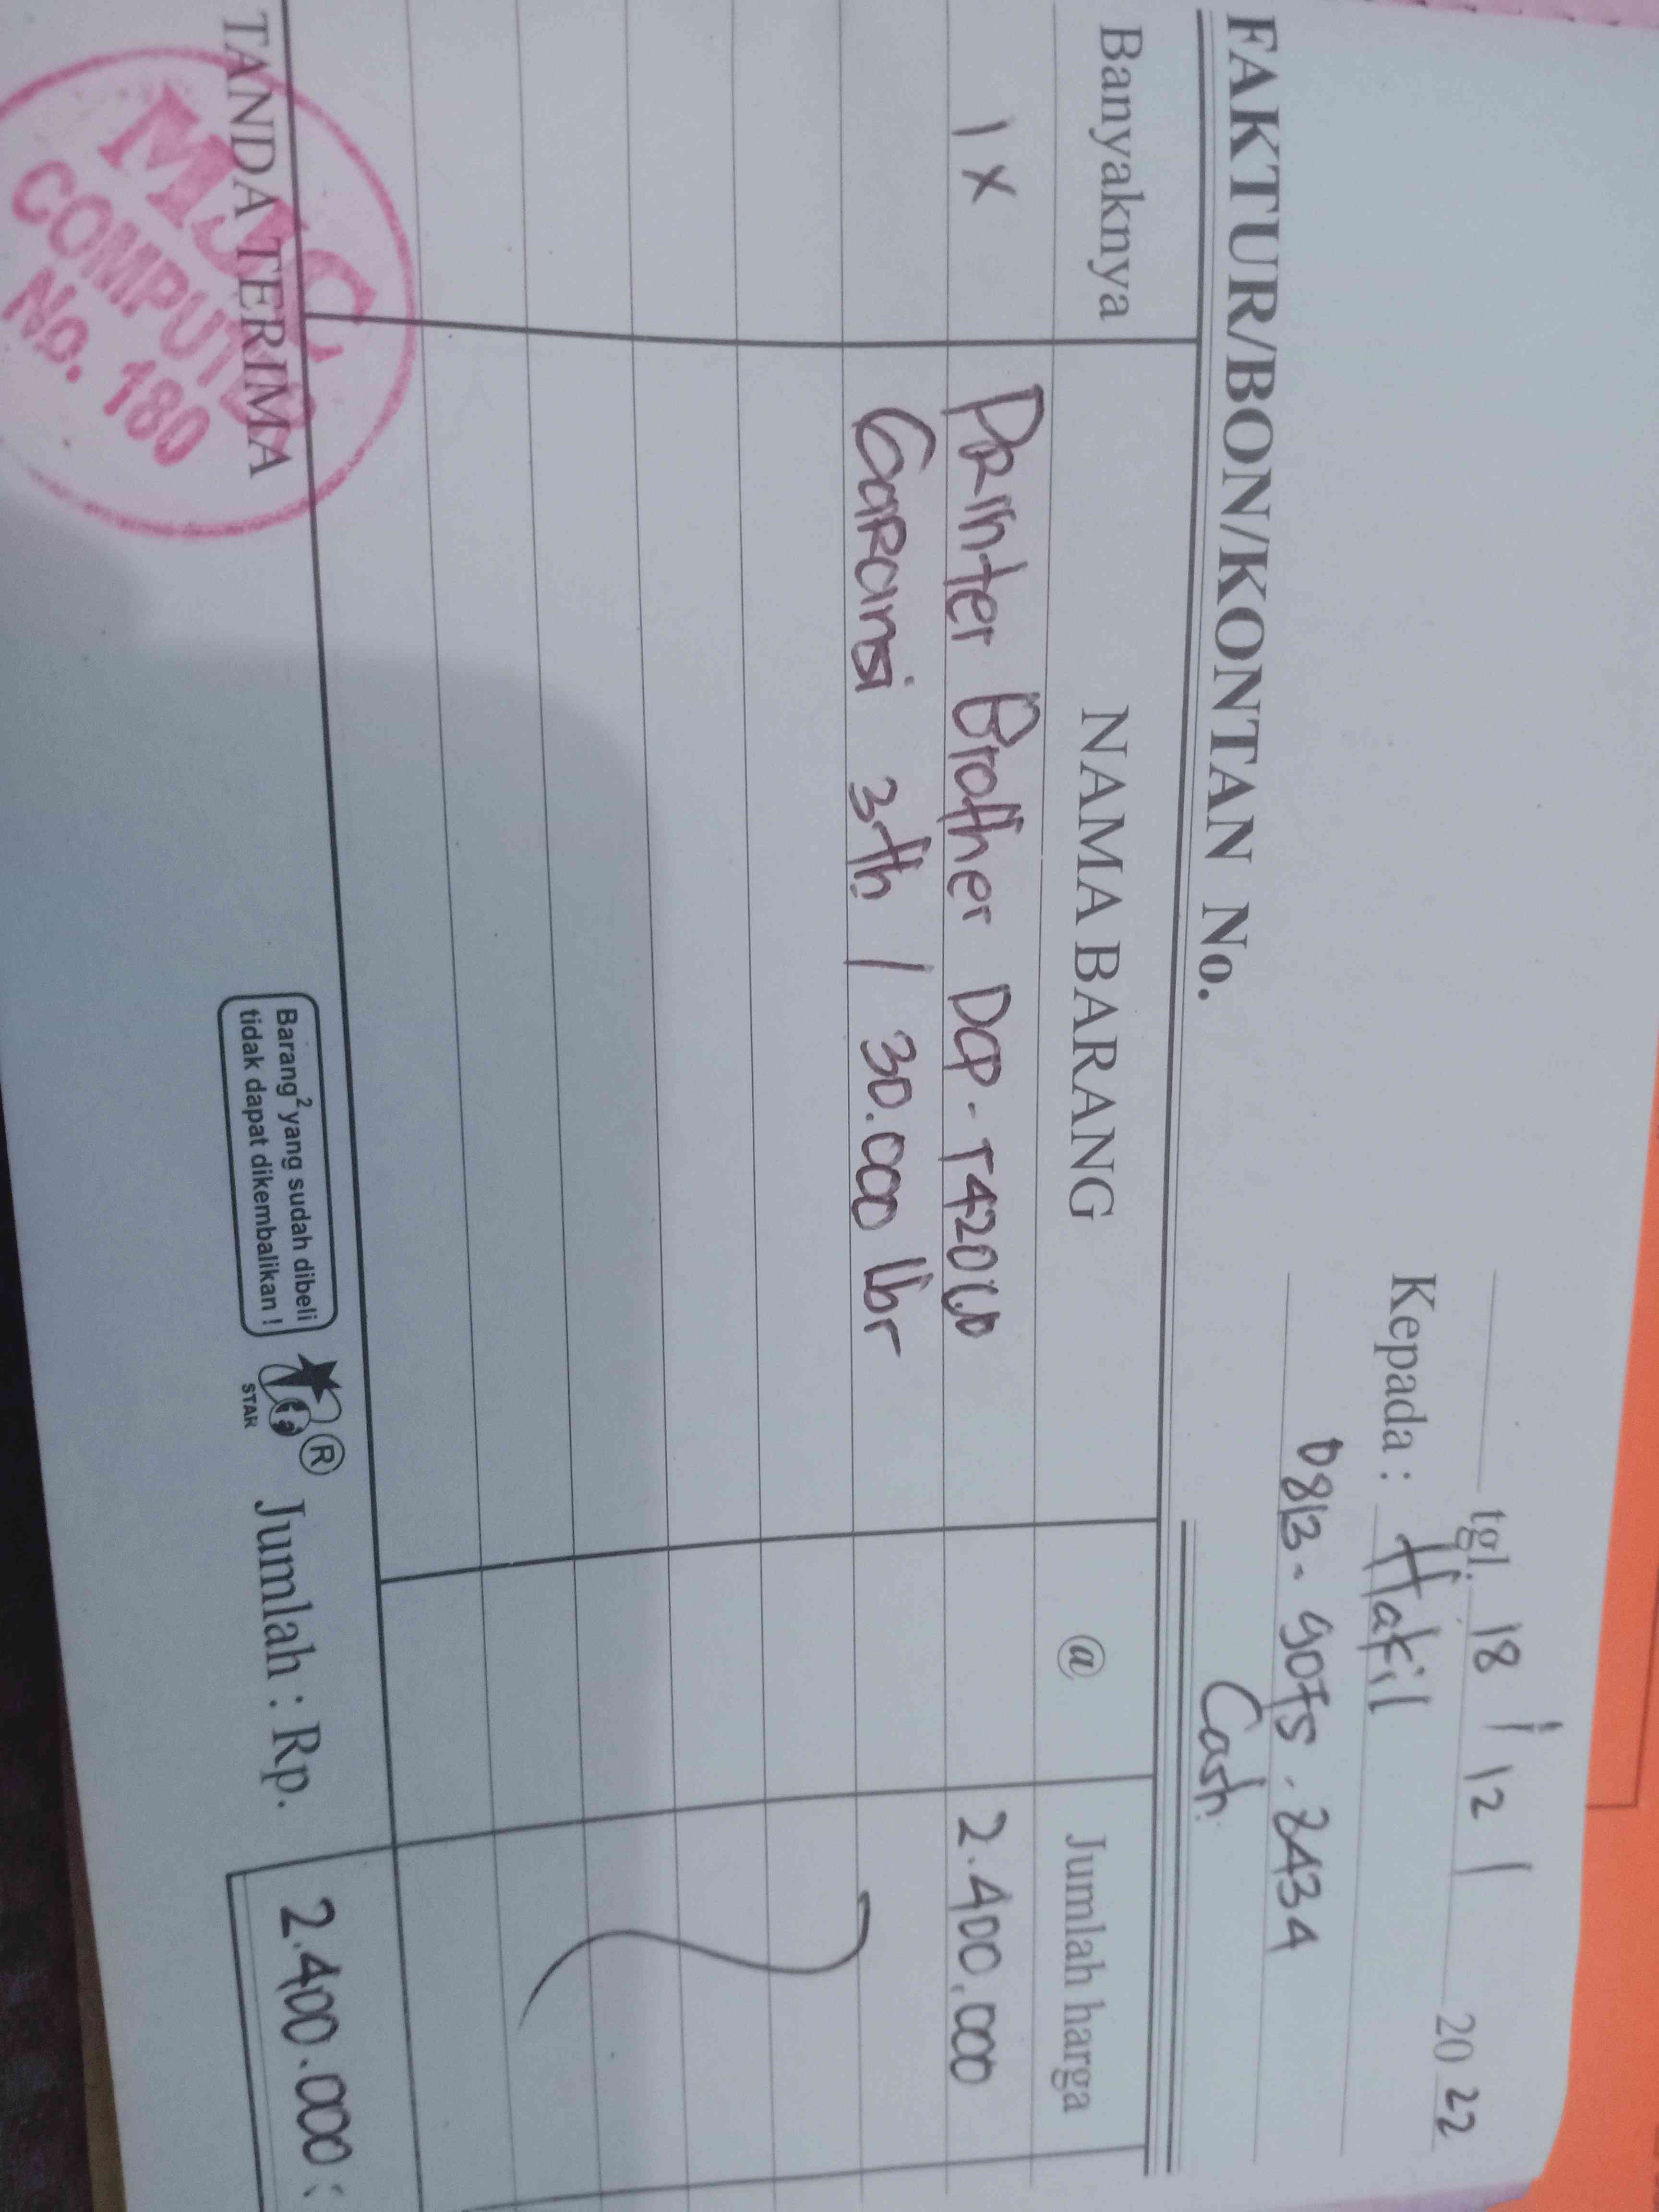 tgl. 18 / 12 / 20 22
Kepada : Hakil
0813-9075.2434
Cash
FAKTUR/BON/KONTAN No.
Banyaknya NAMA BARANG @ Jumlah harga
1 x Printer Brother DCP-T420W 2.400.000
Garansi 3th / 30.000 lbr
TANDA TERIMA
Barang2 yang sudah dibeli
tidak dapat dikembalikan !
STAR
®
Jumlah : Rp. 2.400.000
COMPUTER
No. 180